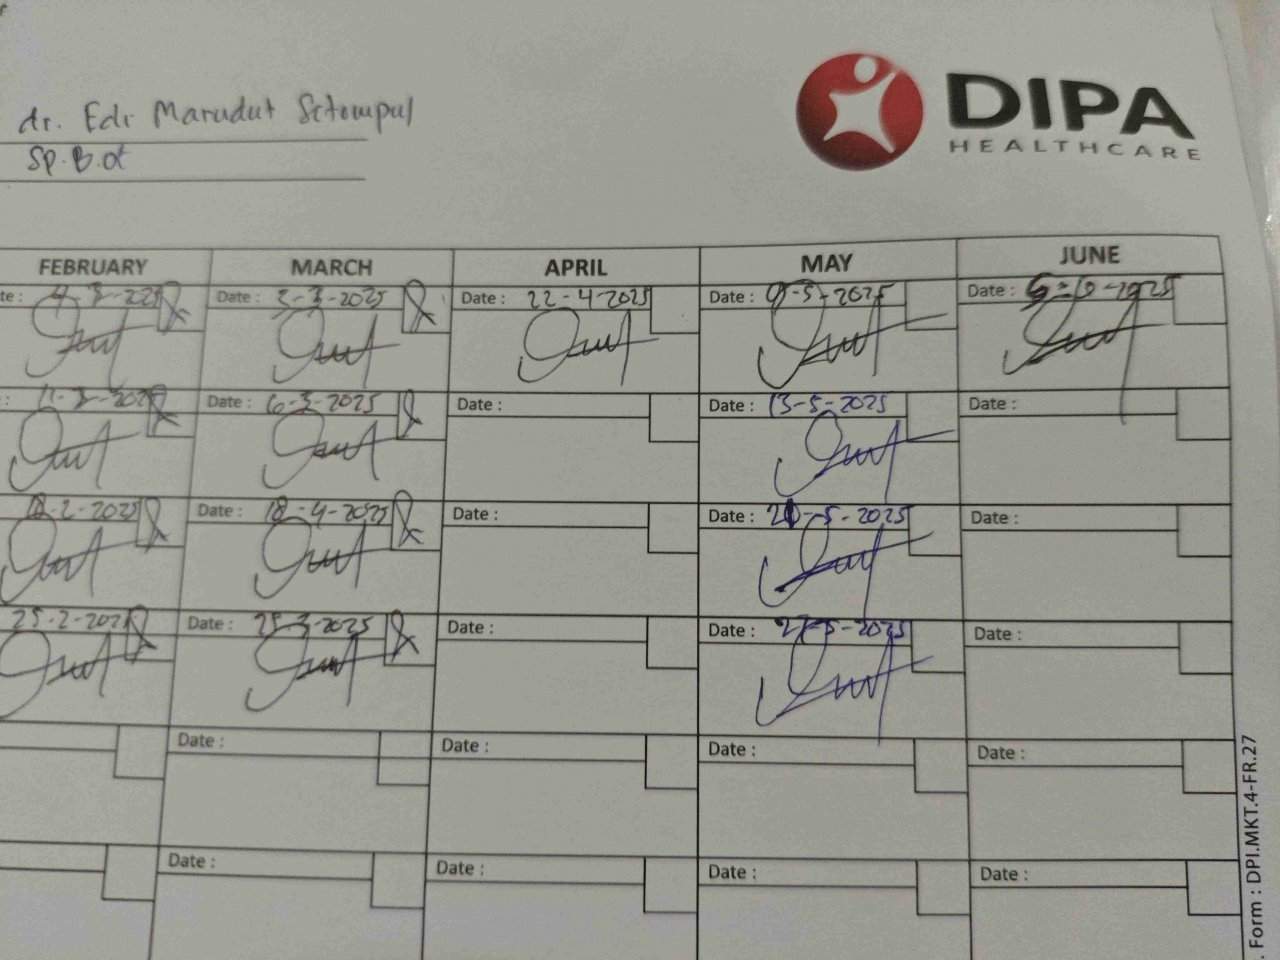 dr. Edi Marudut Sitompul
Sp.B.ot
DIPA
HEALTHCARE
FEBRUARY MARCH APRIL MAY JUNE
Date : 3-3-2025 Date : 22-4-2025 Date : 9-5-2025 Date :
Date : 6-3-2025 Date : Date : 13-5-2025 Date :
18-2-2025 Date : 18-4-2025 Date : Date : -5-2025 Date :
25-2-2025 Date : 25-3-2025 Date : Date : 27-5-2025 Date :
Date : Date : Date : Date :
Date : Date : Date : Date :
. Form : DPI.MKT.4-FR.27